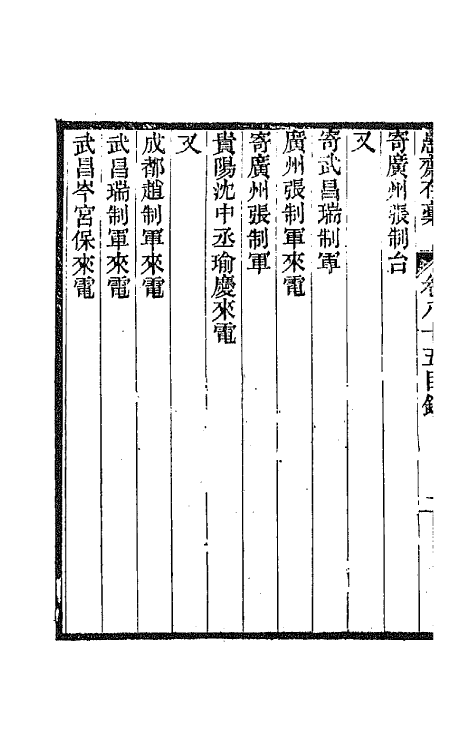 愚齋存藁 卷八十五目錄 一
寄廣州張制台
又
寄武昌瑞制軍
廣州張制軍來電
寄廣州張制軍
貴陽沈中丞瑜慶來電
又
成都趙制軍來電
武昌瑞制軍來電
武昌岑宮保來電